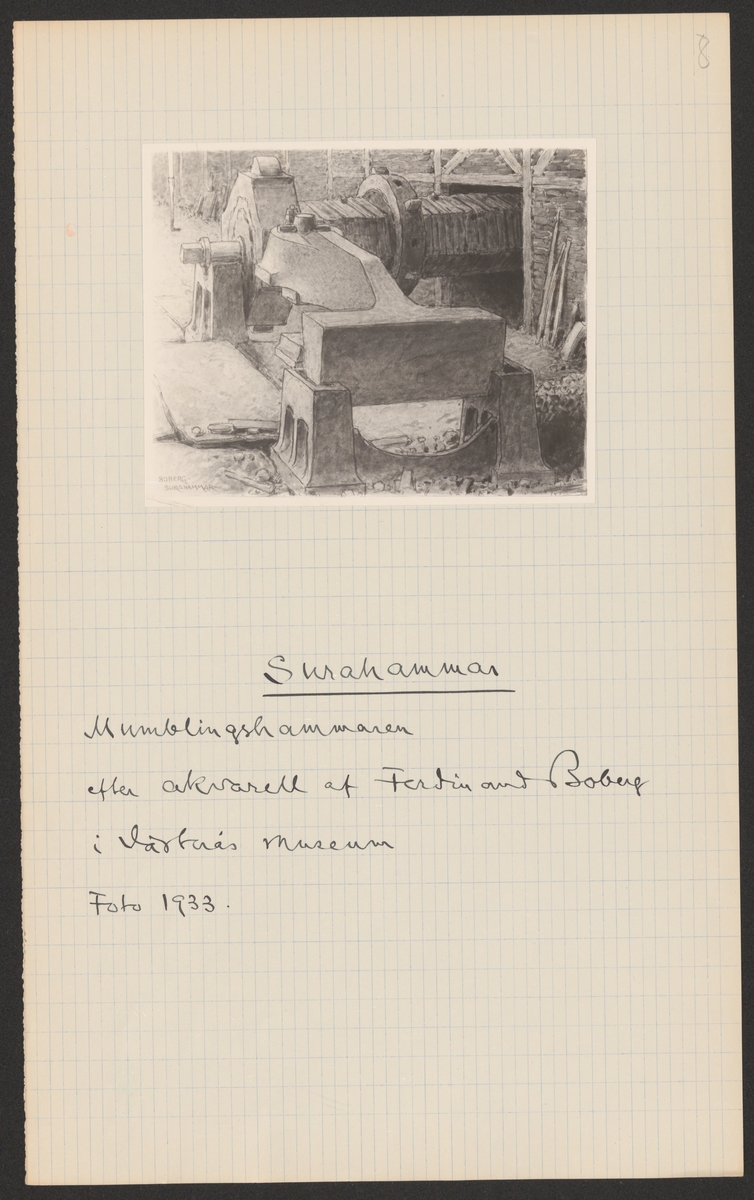 8
BOBERG
SURAHAMMAR
Surahammar
Mumblingshammaren
efter akvarell af Ferdinand Boberg
i Västerås museum
Foto 1933.